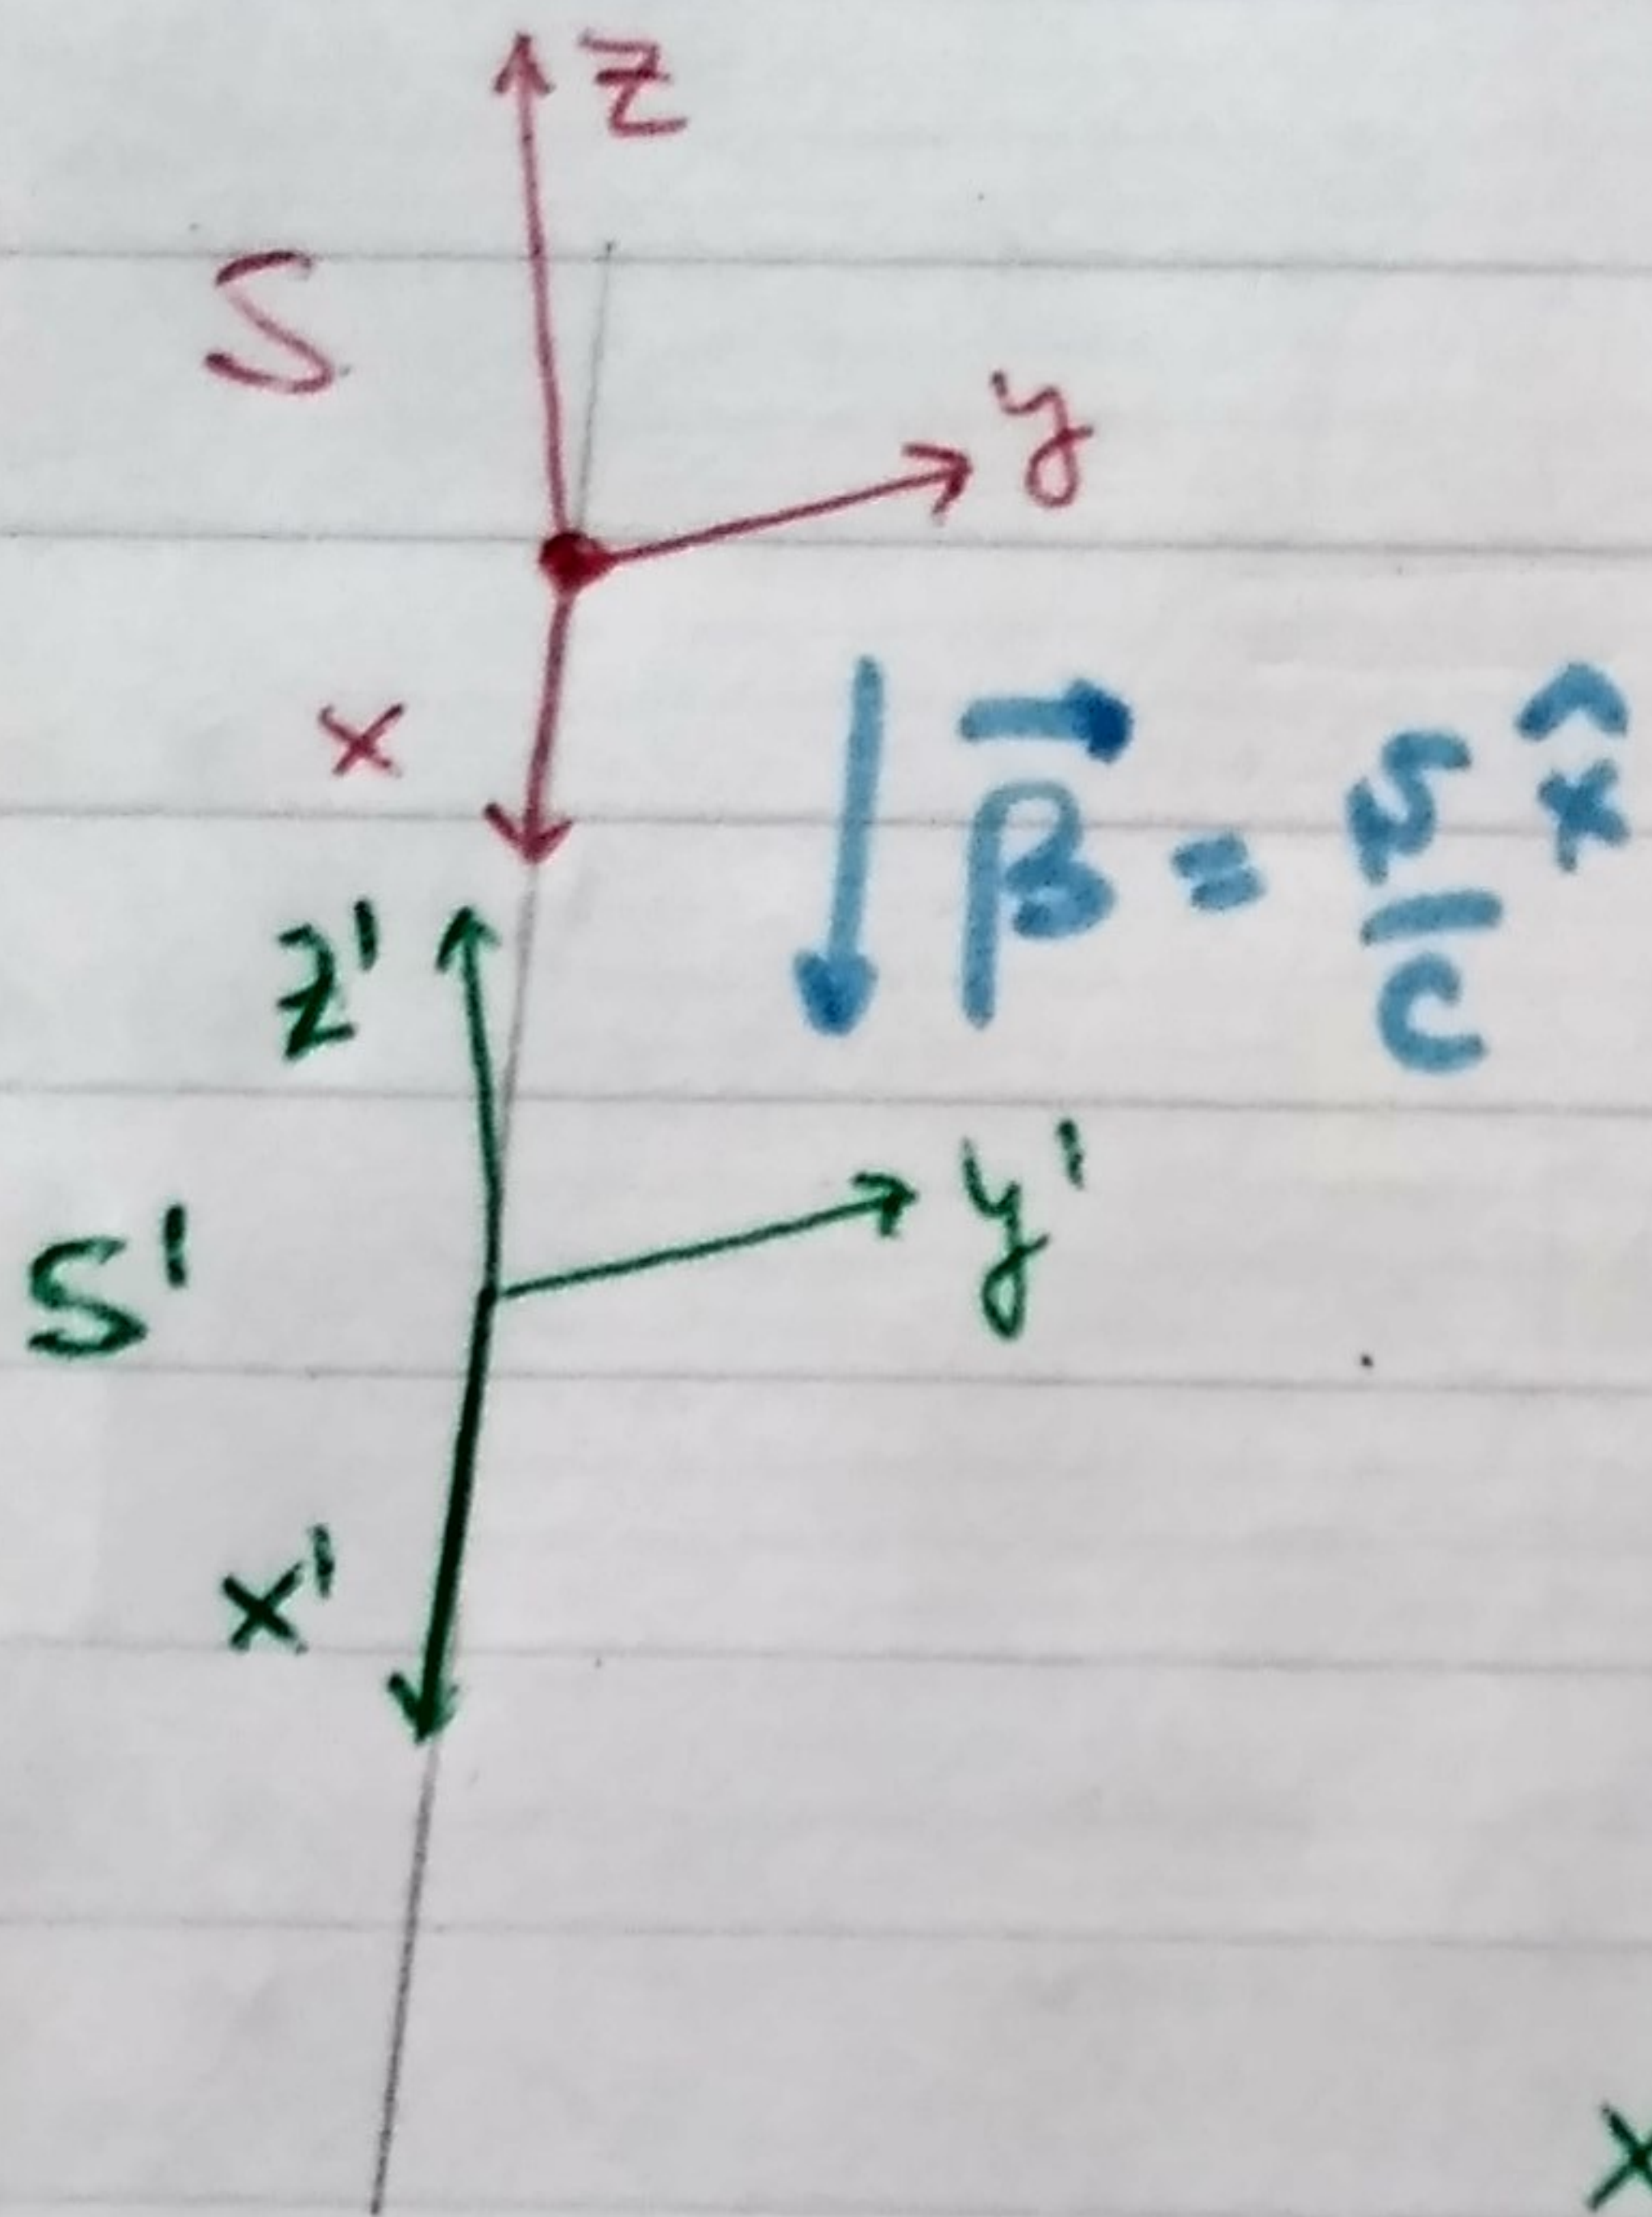 z
S
y
x
β⃗ = v/c x̂
z'
y'
S'
x'
x